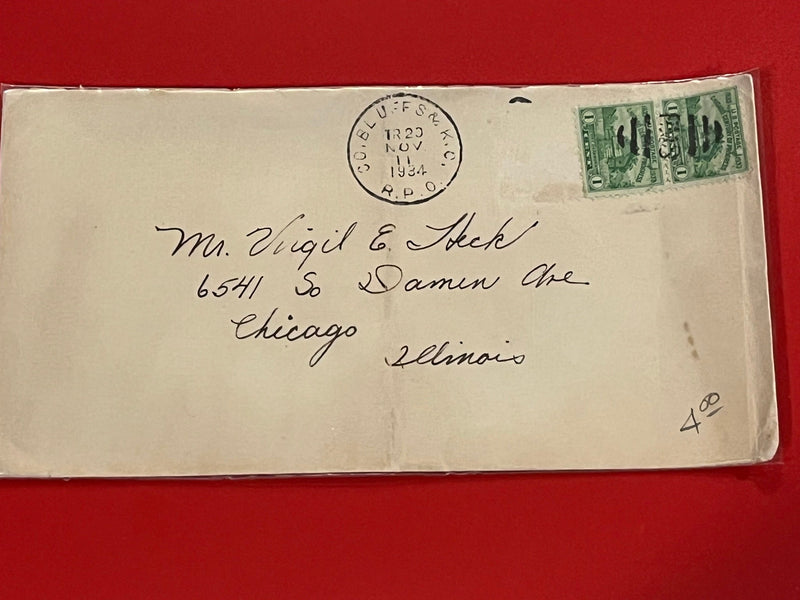 CO. BLUFFS & K.C.
TR 20
NOV
11
1934
R.P.O.
1
1
1
1
Mr. Virgil E. Heck
6541 So Damen Ave
Chicago
Illinois
4 00